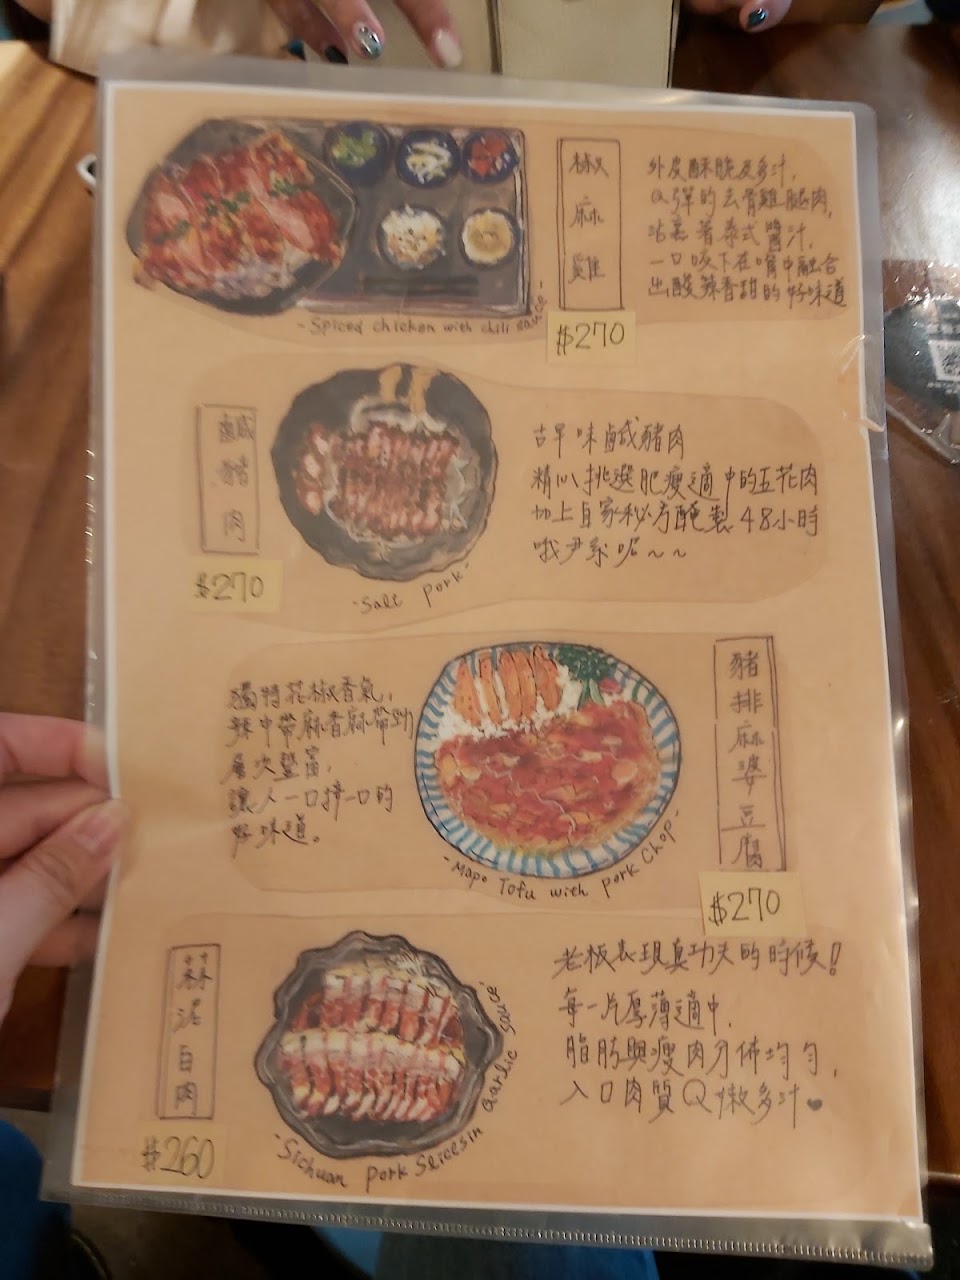 椒麻雞
外皮酥脆及多汁,
Q彈的去骨雞腿肉,
沾裹著泰式醬汁,
一口咬下在嘴中融合
出酸辣香甜的好味道
- Spiced chicken with chili sauce -
$270
鹹豬肉
古早味鹹豬肉
精心挑選肥瘦適中的五花肉
加上自家秘方醃製48小時
哦尹系呢~~
$270
-Salt pork-
豬排麻婆豆腐
獨特花椒香氣,
辣中帶麻香麻帶勁
層次豐富,
讓人一口接一口的
好味道。
-Mapo Tofu with pork Chop-
$270
蒜泥白肉
老板表現真功夫的時候!
每一片厚薄適中,
脂肪與瘦肉分佈均勻,
入口肉質Q嫩多汁♥
$260
-Sichuan pork Slicesin garlic sauce-